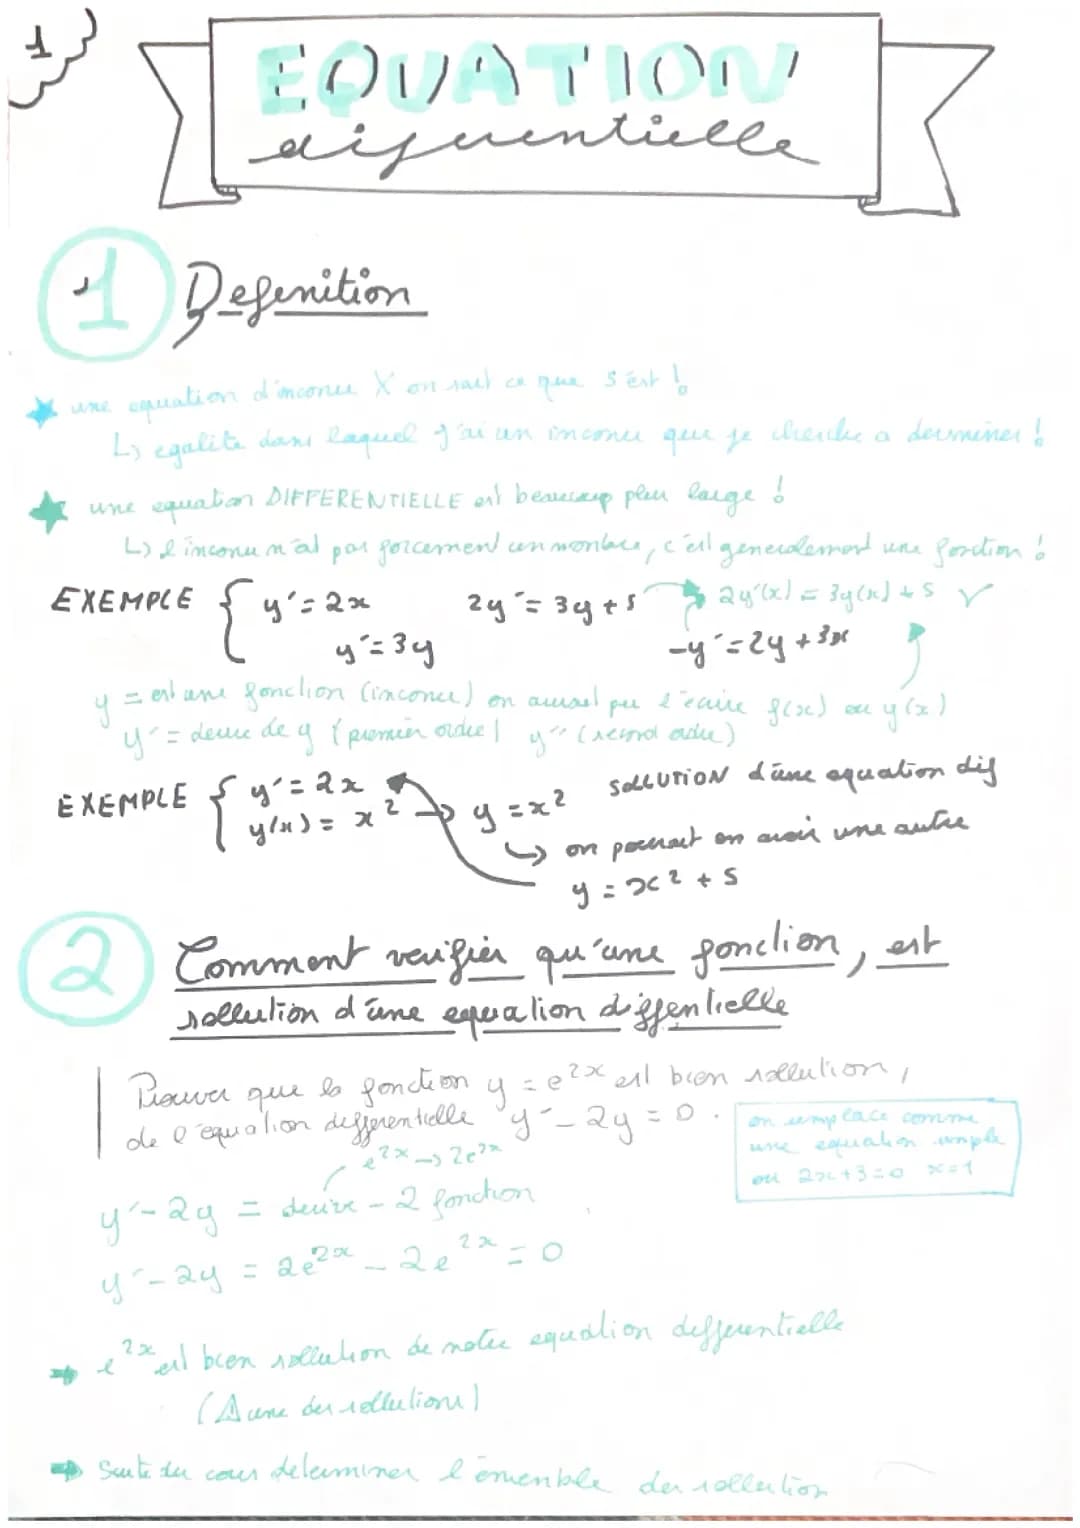 1
EQUATION
diferentielle
1 Defenition
une equation d'inconu X on sait ce que s'est !
↳ egalite dans laquel j'ai un inconu que je cherche a derminer !
une equation DIFFERENTIELLE est beaucoup plus large !
↳ l'inconu n'est pas forcement un nombre, c'est generalement une fonction !
EXEMPLE { y' = 2x 2y' = 3y + 5 → 2y'(x) = 3y(x) + 5 ✓
y' = 3y -y' = 2y + 3x
y = est une fonction (inconu) on aurait pu l'ecrire f(x) ou y(x)
y' = derive de y (premier ordre) y'' (second ordre)
EXEMPLE { y' = 2x SOLLUTION d'une equation dif
y(x) = x² → y = x²
↳ on pourrait en avoir une autre
y = x² + 5
2 Comment verifier qu'une fonction, est
sollution d'une equation diffentielle
Prouver que la fonction y = e²ˣ est bien sollution,
de l'equation differentielle y' - 2y = 0.
on remplace comme
une equation simple
ou 2x+3=0 x=1
e²ˣ → 2e²ˣ
y' - 2y = derive - 2 fonction
y' - 2y = 2e²ˣ - 2e²ˣ = 0
→ e²ˣ est bien sollution de notre equation differentielle
(⚠ une des sollutions)
→ Suite du cours determiner l'ensemble des sollution